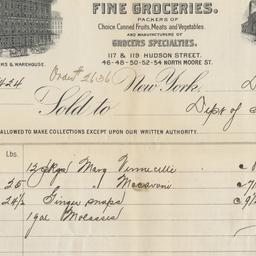 FINE GROCERIES.
PACKERS OF
Choice Canned Fruits, Meats and Vegetables.
AND MANUFACTURERS OF
GROCERS SPECIALTIES.
117 & 119 HUDSON STREET.
46-48-50-52-54 NORTH MOORE ST.
MS & WAREHOUSE.
424 Order # 2636 New York,
Sold to Dept of
ALLOWED TO MAKE COLLECTIONS EXCEPT UPON OUR WRITTEN AUTHORITY.
Lbs.
12 Marg Vermicelli
25 " Macaroni
24½ Ginger snaps
1 gal Molasses